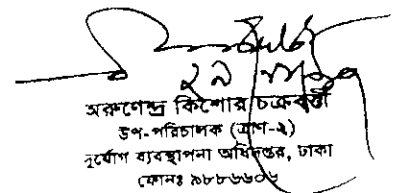 অরুণেন্দ্র কিশোর চক্রবর্তী
উপ-পরিচালক (ত্রাণ-২)
দুর্যোগ ব্যবস্থাপনা অধিদপ্তর, ঢাকা
ফোনঃ ৯৮৮৬৬০৬